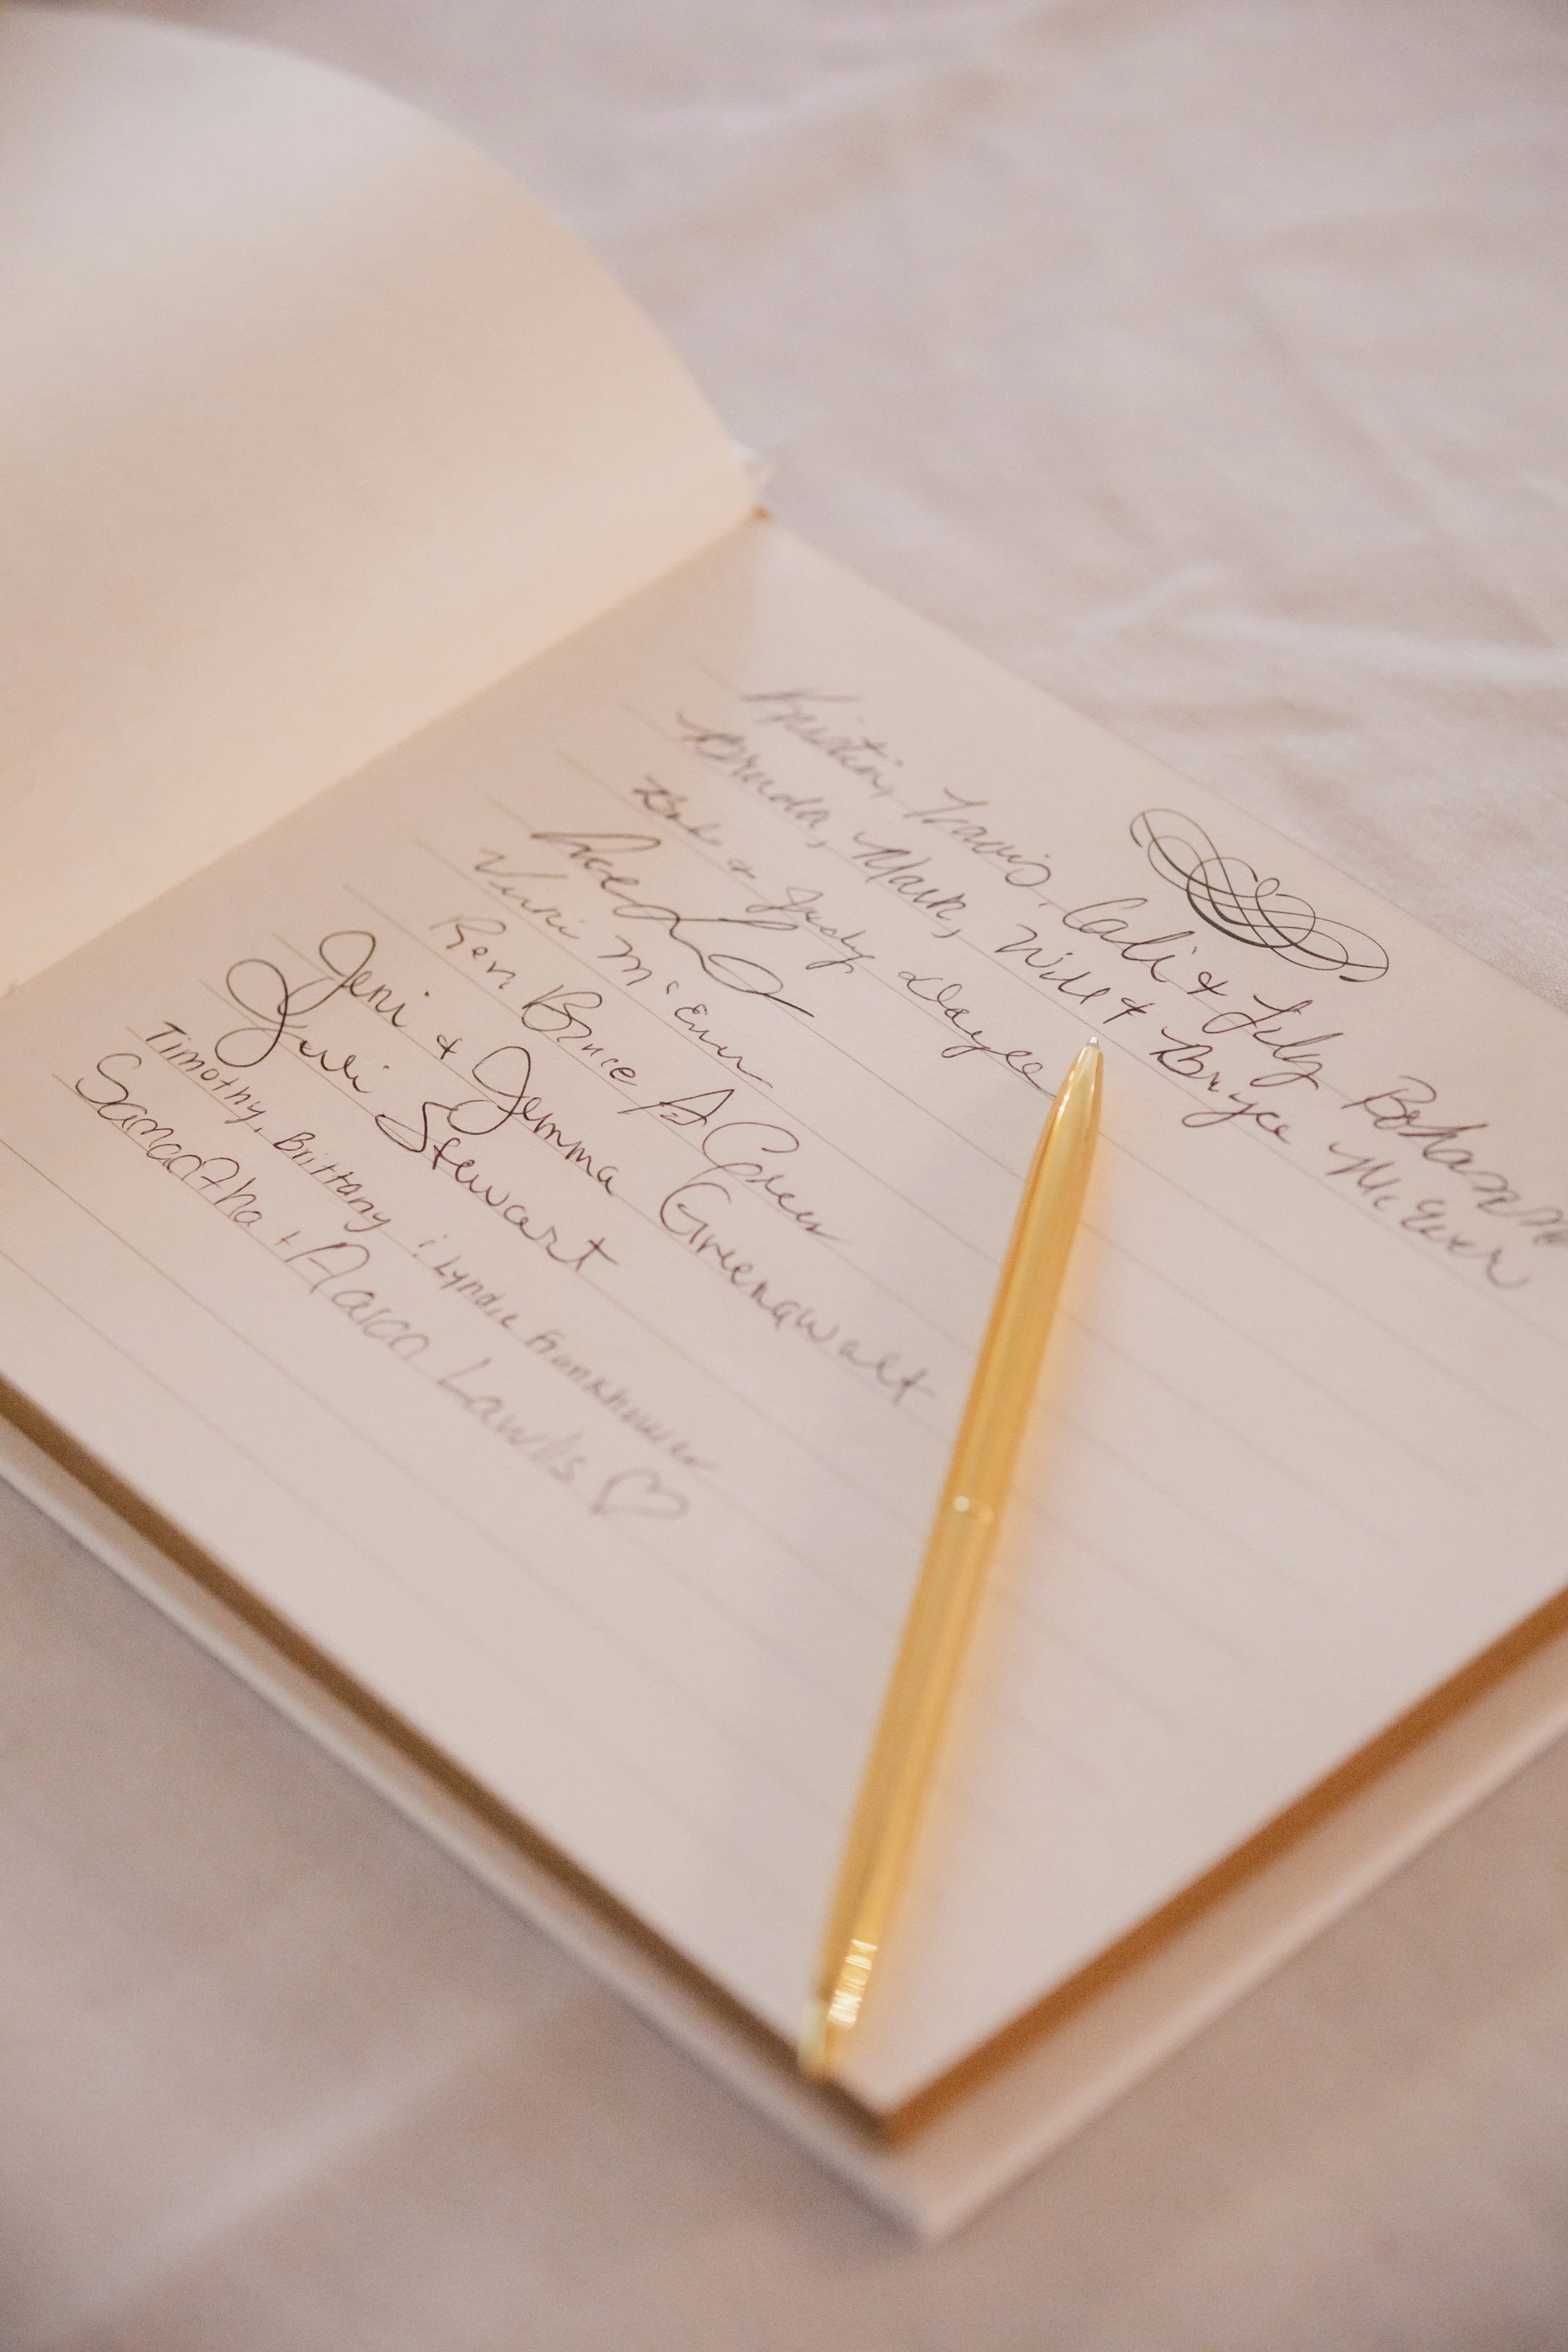 Kristin, Travis, Cali & Lily Bohannon
Brenda, Mark, Will & Bryce McEver
& Judy
McEver
Rev Bruce A Green
Jeni & Jemma Greenawalt
Juli Stewart
Timothy, Brittany & Lyndie Frankhouser
Samantha + Aaron Lawlis ♡